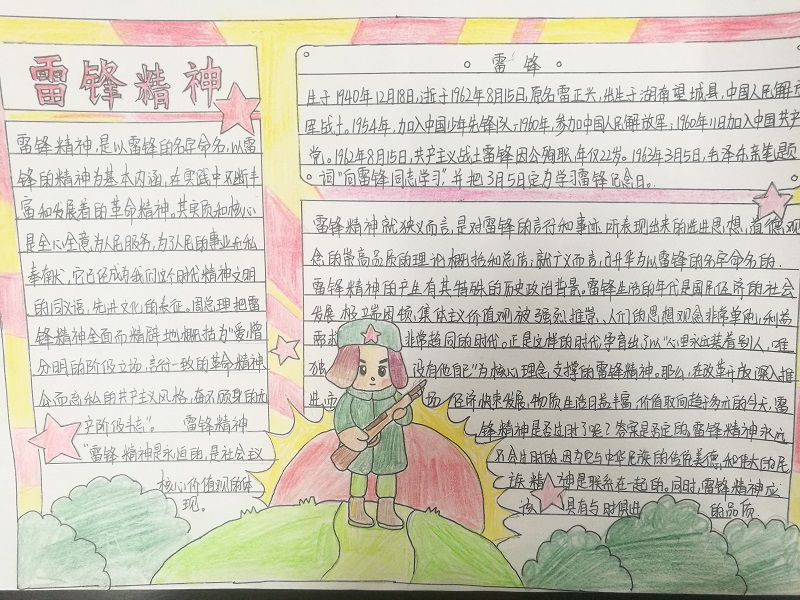 雷锋精神
雷锋精神,是以雷锋的名字命名,以雷
锋的精神为基本内涵,在实践中不断丰
富和发展着的革命精神,其实质和核心
是全心全意为人民服务,为了人民的事业无私
奉献,它已经成为我们这个时代精神文明
的同义语,先进文化的表征。周总理把雷
锋精神全面而精辟地概括为"爱憎
分明的阶级立场,言行一致的革命精神
公而忘私的共产主义风格,奋不顾身的无
产阶级斗志"。 雷锋精神
"雷锋精神是永恒的,是社会主义
核心价值观的体
现。
·雷锋·
生于1940年12月18日,逝于1962年8月15日,原名雷正兴,出生于湖南望城县,中国人民解放
军战士。1954年,加入中国少年先锋队;1960年,参加中国人民解放军;1960年11日加入中国共产
党。1962年8月15日,共产主义战士雷锋因公殉职,年仅22岁。1963年3月5日,毛泽东亲笔题
词"向雷锋同志学习",并把3月5日定为学习雷锋纪念日。
雷锋精神就狭义而言,是对雷锋的言行和事迹所表现出来的先进思想,道德观
念的崇高品质的理论概括和总结;就广义而言,已升华为以雷锋的名字命名的.
雷锋精神的产生有其特殊的历史政治背景。雷锋生活的年代是国民经济的社会
发展极端困顿,集体主义价值观被强烈推崇、人们的思想观念非常单纯,利益
需 非常趋同的时代。正是这样的时代孕育出了以"心里永远装着别人,唯
独 没有他自己"为核心理念,支撑的雷锋精神。那么,在改革开放深入推
进 场 经济快速发展,物质生活日益丰富,价值取向趋于多元的今天,雷
锋精神是否过时了呢?答案是否定的。雷锋精神永远
不会过时的,因为它与中华民族的传统美德,和伟大的民
族精神是联系在一起的。同时,雷锋精神应
该 具有与时俱进 的品质.